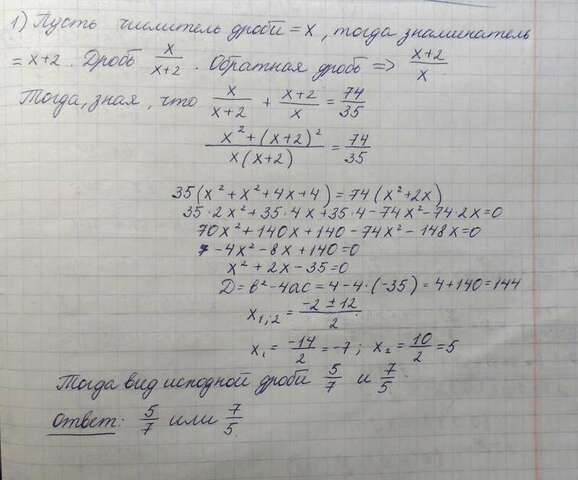 1) Пусть числитель дроби = x, тогда знаминатель
= x+2. Дробь x/(x+2). Обратная дробь => (x+2)/x
Тогда, зная, что x/(x+2) + (x+2)/x = 74/35
(x²+(x+2)²)/(x(x+2)) = 74/35
35(x²+x²+4x+4)=74(x²+2x)
35·2x²+35·4x+35·4-74x²-74·2x=0
70x²+140x+140-74x²-148x=0
-4x²-8x+140=0
x²+2x-35=0
D=b²-4ac=4-4·(-35)=4+140=144
x₁;₂=(-2±12)/2
x₁=-14/2=-7; x₂=10/2=5
Тогда вид исходной дроби 5/7 и 7/5.
Ответ: 5/7 или 7/5